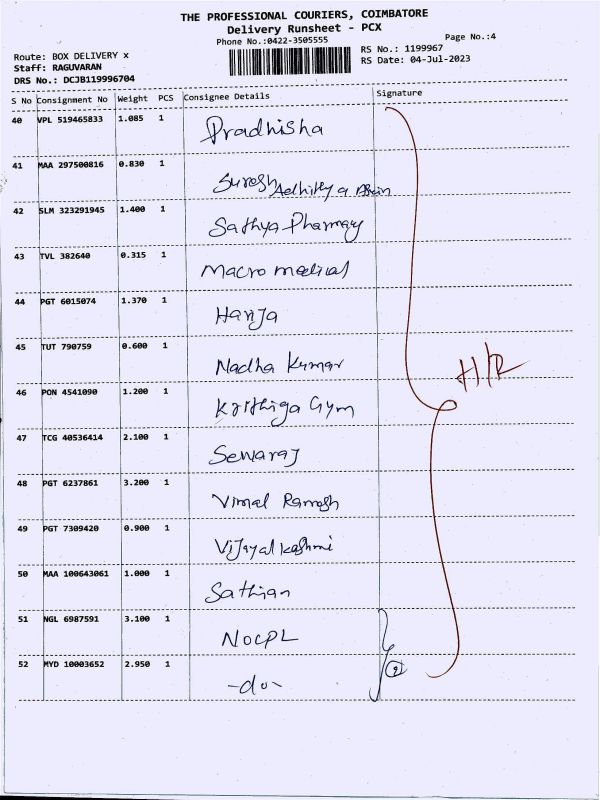 THE PROFESSIONAL COURIERS, COIMBATORE
Delivery Runsheet - PCX
Phone No.:0422-3505555
Page No.:4
Route: BOX DELIVERY x
Staff: RAGUVARAN
DRS No.: DCJB119996704
RS No.: 1199967
RS Date: 04-Jul-2023
S No Consignment No Weight PCS Consignee Details Signature
40 VPL 519465833 1.085 1 Pradhisha
41 MAA 297500816 0.830 1 Suresh Adhithya
42 SLM 323291945 1.400 1 Sathya Pharmacy
43 TVL 382640 0.315 1 Macro medical
44 PGT 6015074 1.370 1 Harija
45 TUT 790759 0.600 1 Nadha Kumar
46 PON 4541090 1.200 1 Krithiga Gym
47 TCG 40536414 2.100 1 Selvaraj
48 PGT 6237861 3.200 1 Vimal Ramesh
49 PGT 7309420 0.900 1 Vijayalkashmi
50 MAA 100643061 1.000 1 Sathian
51 NGL 6987591 3.100 1 NOCPL
52 MYD 10003652 2.950 1 -do-
H/R
2